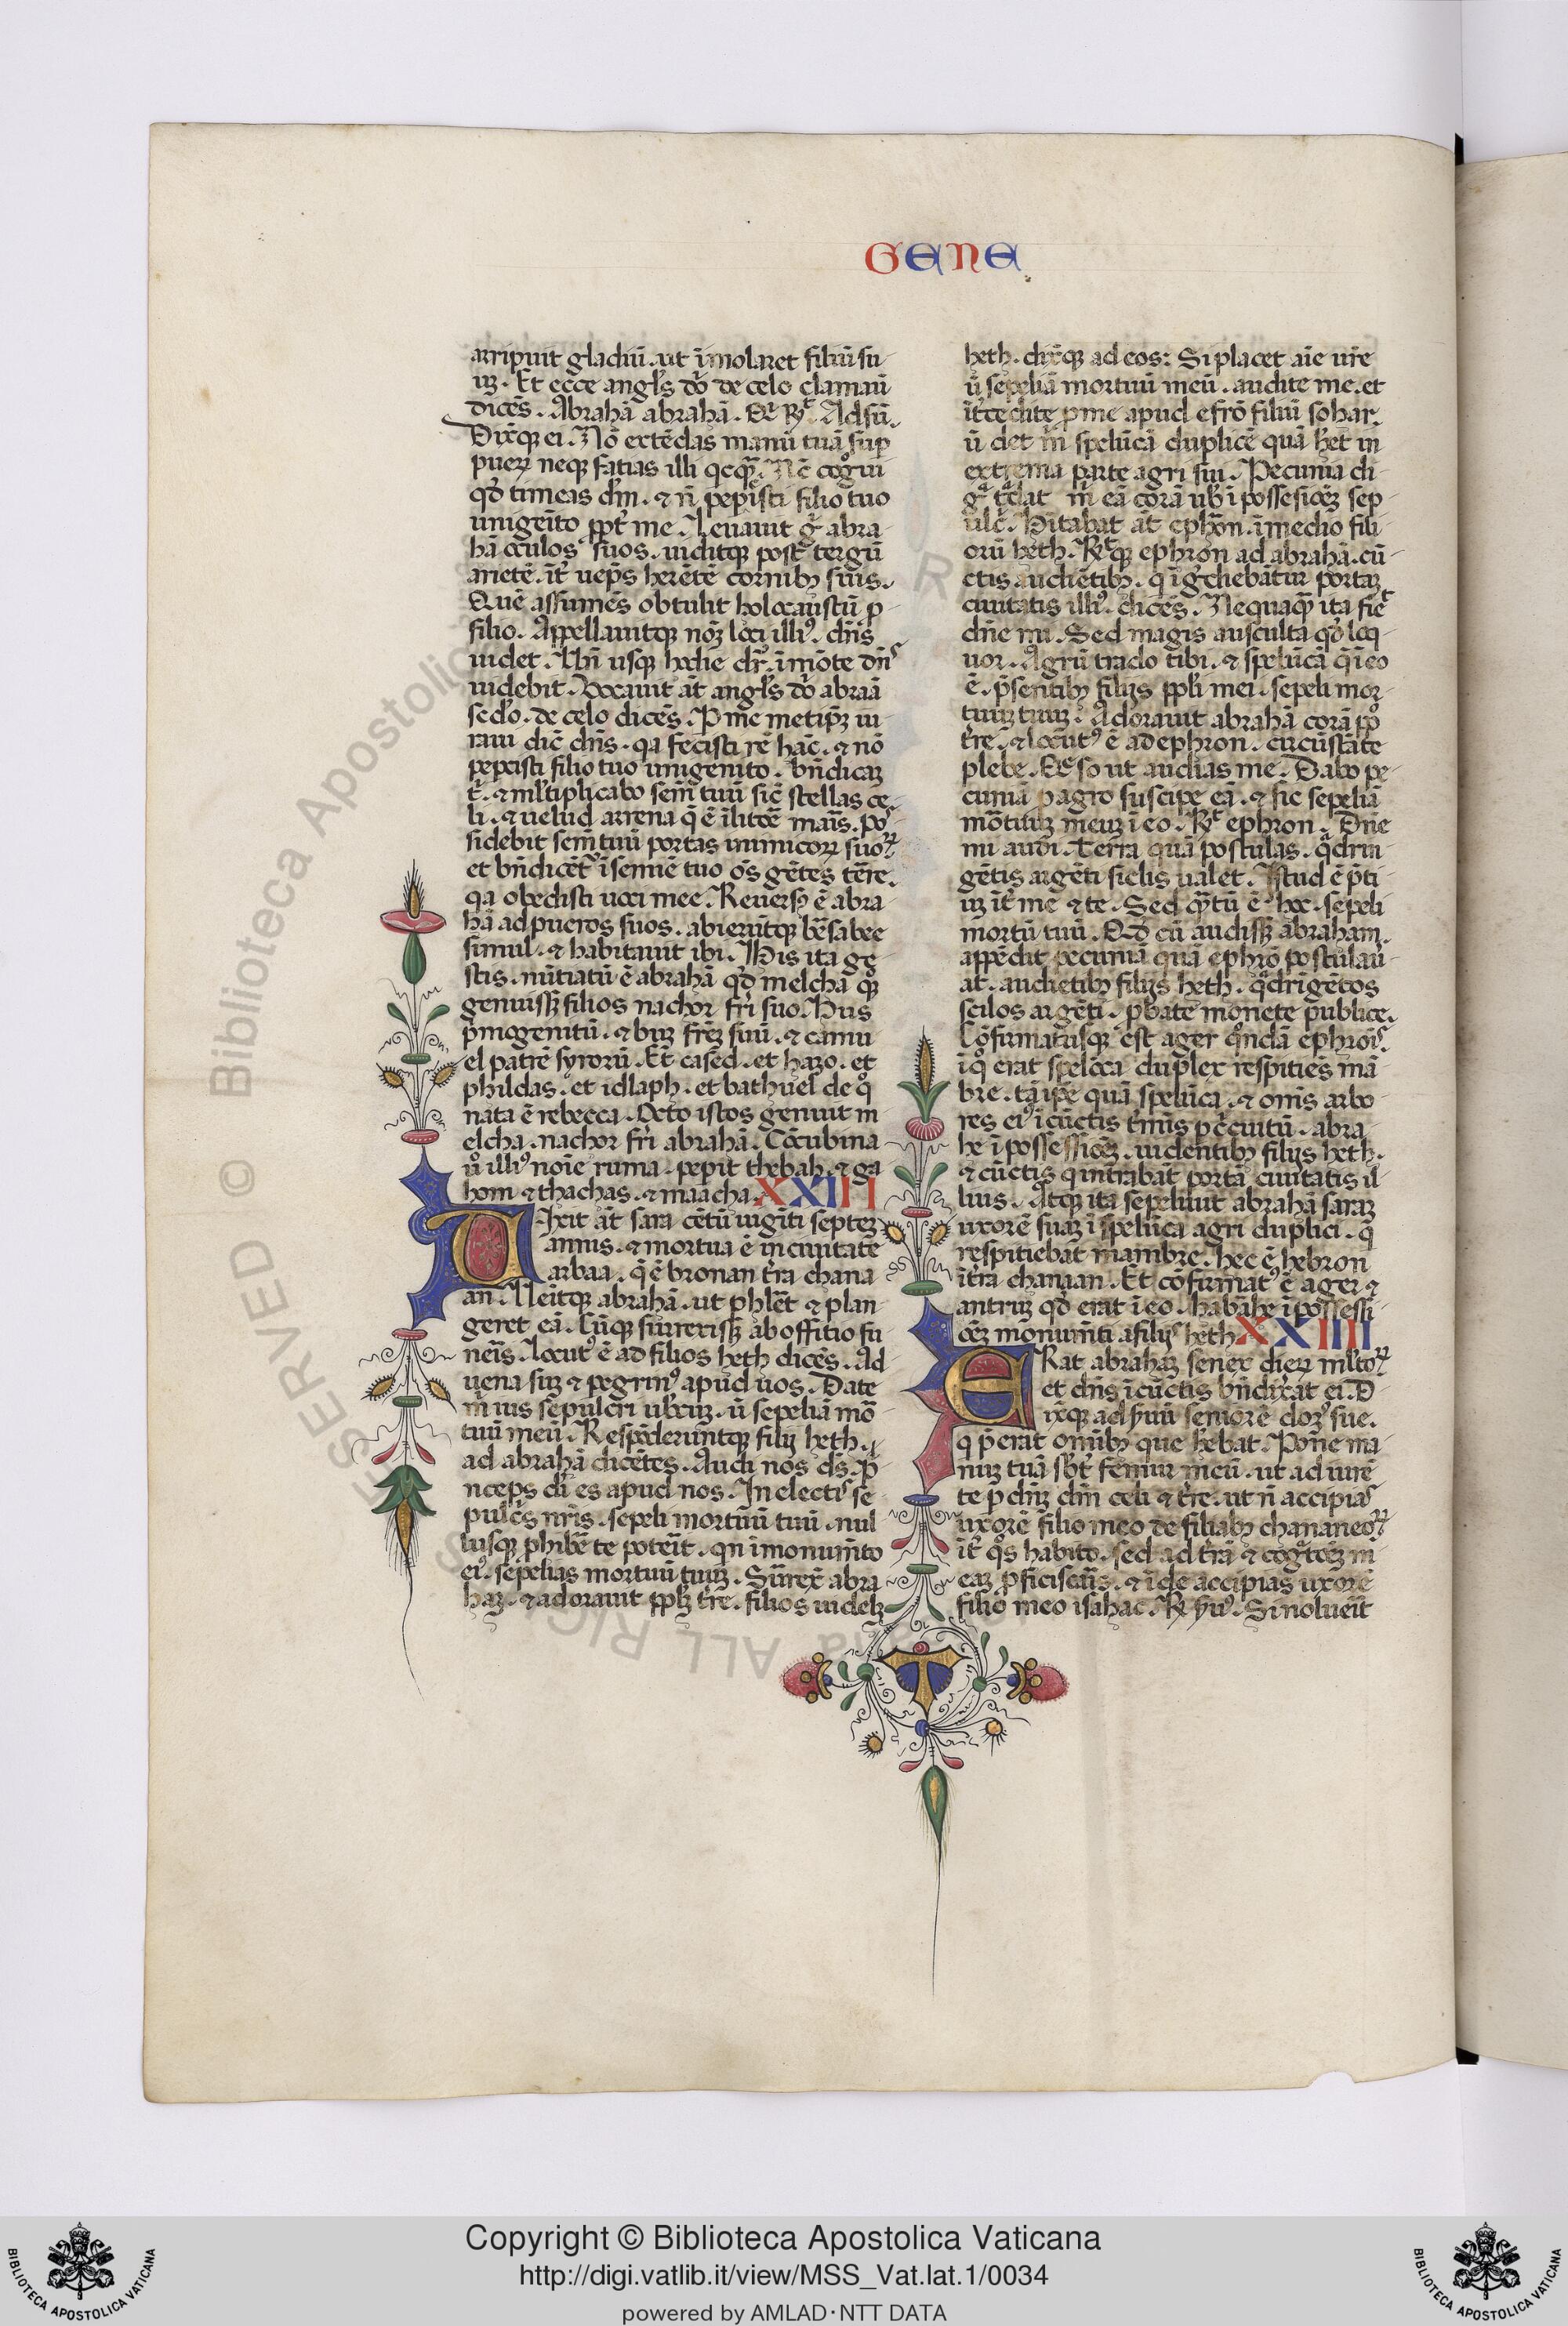 GENE
arripuit gladiū. ut īmolaret filiū su
uꝫ. Et ecce angl̄s dō de celo clamauī
dicēs. Abrahā abrahā. Et Rͭ. Adsū.
Dix̄qꝫ ei. Nō extēdas manū tuā sup
pueꝝ neqꝫ fatias illi qcqꝫ. Nc̄ cog̊ui
qd̄ timeas dn̄m. ⁊ n̄ pepᵢsti filio tuo
unigeīto ppt̄ me. Leuauit gͦ abra
hā oculos suos. uiditqꝫ post tergū
arietē. īt̄ uep̄s herētē cornibꝫ suis.
Quē assumēs obtulit holocaustū p
filio. Appellauitqꝫ nōꝫ loci illiꝰ. dn̄s
uidet. Un̄ usqꝫ hodie dr̄. ī mōte dn̄s
uidebit. Vocauit āt angl̄s dō abraā
sed̄o. de celo dicēs. P me metip̄ꝫ iu
raui dic̄ dn̄s. qa fecisti rē hāc. ⁊ nō
pepcisti filio tuo unigenito. bn̄dicaꝫ
t̄. ⁊ ml̄tiplicabo sem̄ tuū sic̄ stellas ce
li. ⁊ uelud arrena q̄ ē ī litoē maīs. po
sidebit sem̄ tuū portas inimicoꝝ suoꝝ
et bn̄dicēt ī semiē tuo os̄ gētes tēre.
qa obedisti uoci mee. Reuersꝰ ē abra
hā ad pueros suos. abierūtqꝫ bēsabee
simul. ⁊ habitauit ibi. His ita ge
stis. nūtiatū ē abrahā qd̄ melcha qꝫ
genuissꝫ filios nachor fr̄i suo. Hus
pͥmogenitū. ⁊ buꝫ frēꝫ suū. ⁊ camu
el patrē syrorū. Et cased. et hazo. et
phildas. et idlaph. et bathuel de qͦ
nata ē rebecca. Octo istos genuit m
elcha. nachor fr̄i abrahā. Cōcubina
ūͦ illiꝰ noīe ruma. pepit thebah. ⁊ ga
hom ⁊ thachas. ⁊ maacha. XXIII
Uixit āt sara cētū uigīti septeꝫ
annis. ⁊ mortua ē in ciuitate
arbaa. q̄ ē bronan t̄ra chana
an. Ueītqꝫ abrahā. ut phlēt ⁊ plan
geret eā. Cūqꝫ surrexissꝫ ab offitio fu
neīs. locutꝰ ē ad filios heth dicēs. Ad
uena suꝫ ⁊ pegrinꝰ apud uos. Date
m̄ ius sepulcri ub̄cuꝫ. ū sepeliā mō
tuū meū. Respōderuntqꝫ filij heth.
ad abrahā dicētes. Audi nos dn̄s. pͥ
nceps dī es apud nos. In electis se
pulcͥs nr̄is. sepeli mortuū tuū. nul
lusqꝫ phibē te poteīt. qn ī monum̄to
eiꝰ. sepelias mortuū tuuꝫ. Surrex̄ abra
haꝫ. ⁊ adorauit pplꝫ t̄re. filios uidelꝫ
heth. dix̄qꝫ ad eos: Si placet aīe ur̄e
ū sepeliā mortuū meū. audite me. et
īt̄cedite p me apud efrō filiū sohar.
ū det m̄ spelūcā duplicē quā h̄et in
extrema parte agri sui. Pecunia di
gͣ tͣdat m̄ eā corā ub̄ ī possesiōeꝫ sep
ulcͥ. Hītabat āt ephron. ī medio fili
orū heth. Rͭqꝫ ephron ad abrahā. cū
ctis audiētibꝫ. q īgͥdiebātur portaꝫ
ciuitatis illiꝰ. dicēs. Nequaqꝫ ita fiet
dn̄e mi. Sed magis ausculta qd̄ loq
uor. Agrū trado tibi. ⁊ spelūcā q̄ ī eo
ē. pͥsentibꝫ filijs ppl̄i mei. sepeli mor
tuuꝫ tuuꝫ. Adorauit abrahā corā pp̄o
t̄re. ⁊ locutꝰ ē ad ephron. cūcūstāte
plebe. Q̄so ut audias me. Dabo pe
cuniā p agro suscipe eā. ⁊ sic sepeliā
mōtuuꝫ meuꝫ ī eo. Rͭ ephron. Dn̄e
mi audi. Terra quā postulas. qͣdrin
gētis argēti siclis ualet. Istud ē p̄ti
uꝫ īt̄ me ⁊ te. Sed qͣtū ē hoc. sepeli
mortū tuū. Qd̄ cū audissꝫ abraham.
appēdit pecuniā quā ephrō postulau
at. audiētibꝫ filijs heth. qͣdrigētos
scilos argēti. pbate monete publice.
Cōfirmatusqꝫ est ager qͦndā ephroīs.
ī qͦ erat speloca duplex respitiēs mā
bre. tā ip̄e quā spelūca. ⁊ om̄s arbo
res eiꝰ ī cūctis t̄mīs p cͥcuitū. abra
he ī possessiōeꝫ. uidentibꝫ filijs heth.
⁊ cūctis q intͣbāt portā ciuitatis il
lius. Atqꝫ ita sepeliuit abrahā saraꝫ
uxorē suaꝫ ī spelūca agri duplici. q̄
respitiebāt mambre. hec ē hebron
ī t̄ra chanaan. Et cōfirmatꝰ ē ager ⁊
antruꝫ qd̄ erat ī eo. habrāhe ī possessi
ōeꝫ monum̄ti a filijs heth XXIIII
Erat abrahaꝫ senex dieꝝ ml̄toꝝ
et dn̄s ī cūctis bn̄dixāt ei. D
ix̄qꝫ ad s̄uū seniorē domꝰ sue.
q pͥerat om̄ibꝫ que h̄ebat. Pone ma
nuꝫ tuā sb̄t femur meū. ut adiurē
te p dn̄ꝫ dm̄ celi ⁊ t̄re. ut n̄ accipias
uxorē filio meo de filiabꝫ chananeoꝝ
īt̄ qͦs habito. sed ad t̄rā ⁊ cogͣtōeꝫ m
eaꝫ pficiscaīs. ⁊ īde accipias uxorē
filio meo isahac. Rͭ s̄uꝰ. Si nolueīt
Copyright © Biblioteca Apostolica Vaticana
http://digi.vatlib.it/view/MSS_Vat.lat.1/0034
powered by AMLAD·NTT DATA
BIBLIOTECA APOSTOLICA VATICANA
BIBLIOTECA APOSTOLICA VATICANA